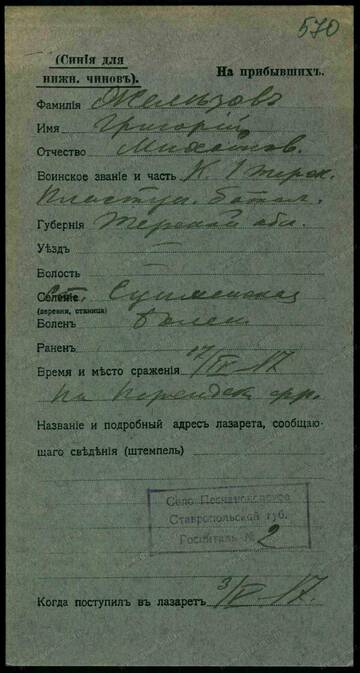 570
(Синія для
нижн. чиновъ).
На прибывшихъ.
Фамилія
Имя Григорій
Отчество
Воинское званіе и часть К. 1 терск.
Пластун. батал.
Губернія Терской обл.
Уѣздъ —
Волость
Селеніе Ст.
(деревня, станица)
Боленъ болен
Раненъ
Время и мѣсто сраженія 17/IV 17
на фр.
Названіе и подробный адресъ лазарета, сообщаю-
щаго свѣдѣнія (штемпель)
Село Песчанокопское
Ставропольской губ.
Госпиталь № 2
Когда поступилъ въ лазаретъ 3/V 17.